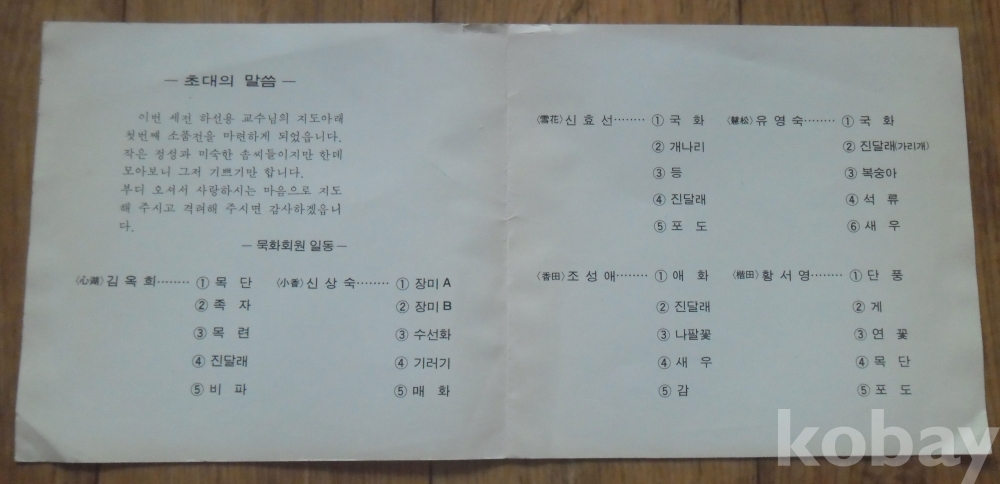 — 초대의 말씀 —
이번 세전 하선용 교수님의 지도아래
첫번째 소품전을 마련하게 되었읍니다.
작은 정성과 미숙한 솜씨들이지만 한데
모아보니 그저 기쁘기만 합니다.
부디 오셔서 사랑하시는 마음으로 지도
해 주시고 격려해 주시면 감사하겠읍니
다.
— 묵화회원 일동 —
〈心湖〉김옥희········ ①목 단
②족 자
③목 련
④진달래
⑤비 파
〈小香〉신상숙········ ①장미 A
②장미 B
③수선화
④기러기
⑤매 화
〈雪花〉신효선········ ①국 화
②개나리
③등
④진달래
⑤포 도
〈慧松〉유영숙········ ①국 화
②진달래(가리개)
③복숭아
④석 류
⑥새 우
〈香田〉조성애········ ①애 화
②진달래
③나팔꽃
④새 우
⑤감
〈楷田〉황서영········ ①단 풍
②게
③연 꽃
④목 단
⑤포 도
kobay